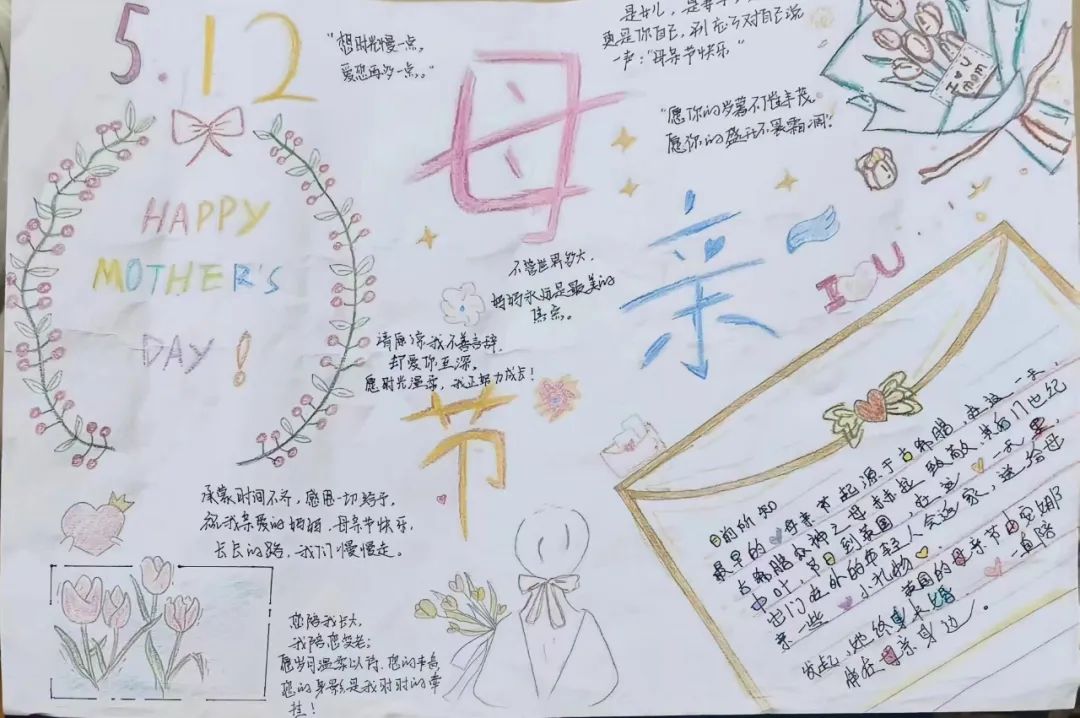 5.12
"想时光慢一点,
爱您再多一点。"
是女儿,是
更是你自己,别忘了对自己说
一声:"母亲节快乐"
"愿你的岁暮不惟丰茂
愿你的盛壮不畏霜凋".
I ♥ U
mom
HAPPY
MOTHER'S
DAY!
母
亲
节
I ♥ U
不管世界多大,
妈妈永远是最美的
焦点。
请原谅我不善言辞,
却爱你至深,
愿时光温柔,我正努力成长!
承蒙时间不弃,感恩一切给予,
祝我亲爱的妈妈,母亲节快乐,
长长的路,我们慢慢走。
您陪我长大,
我陪您变老;
愿岁月温柔以待,您的声音
您的身影是我时时的牵
挂!
目前所知
最早的母亲节起源于古希腊,在这一天,
古希腊众神之母赫拉致敬,其后17世纪
中叶,节日到英国,在这一天里,
出门在外的年轻人会返家,送给母
亲一些小礼物
美国的母亲节由安娜
发起,她终身未婚一直陪
伴在母亲身边。